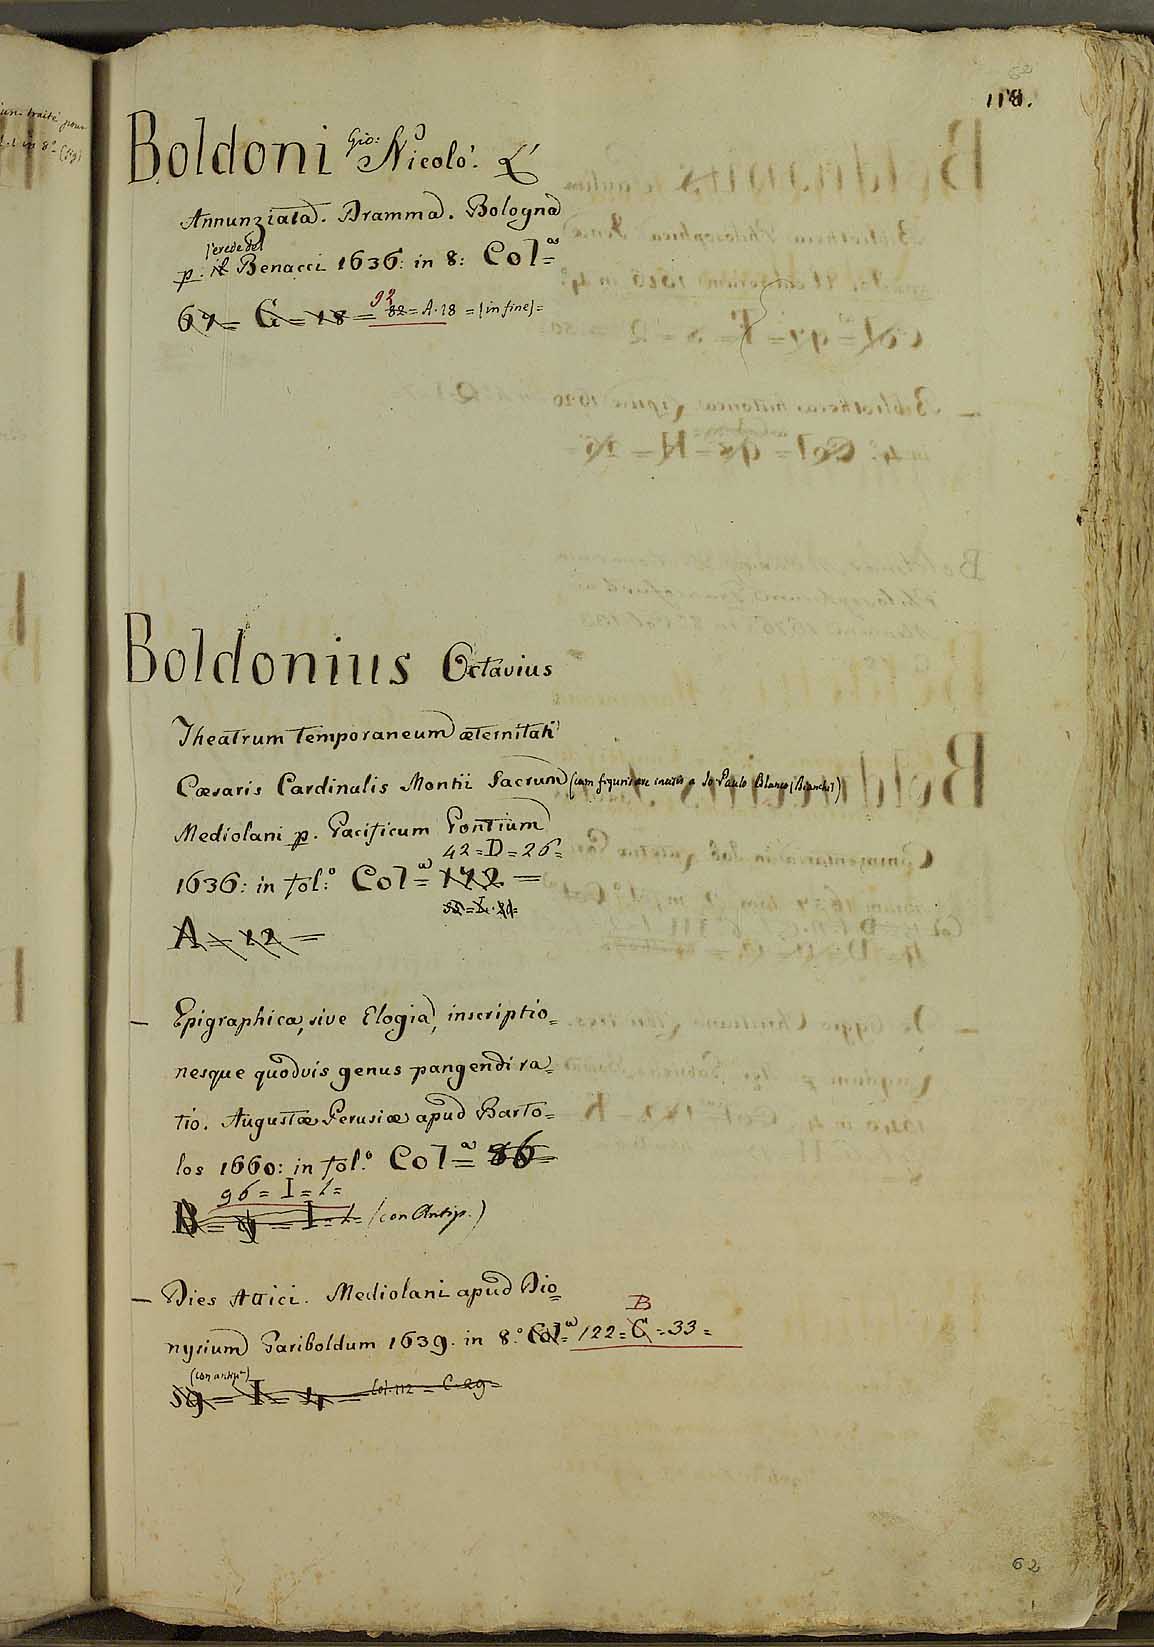 62
118.
Boldoni Gio: Nicolò. L'
Annunziata. Dramma. Bologna
l'erede del
p. il Benacci 1636: in 8: Col=a
67= G= 18= 92 82= A. 18 = (in fine)=
Boldonius Octavius
Theatrum temporaneum æternitati
Cæsaris Cardinalis Montii Sacrum (cum figuris ære incisis a Jo: Paulo Blanco (Bianchi))
Mediolani p. Pacificum Pontium
42=D=26=
1636: in fol:o Col=a 172 =
A= 12 =
— Epigraphica, sive Elogia, inscriptio=
nesque quodvis genus pangendi ra=
tio. Augustæ Perusiæ apud Barto=
los 1660: in fol.o Col=a 86=
96= I= 1=
B= 9= I= 1= (con Antip.)
— Dies Attici. Mediolani apud Dio=
B
nysium Gariboldum 1639. in 8.o Col=a 122= C= 33=
(con antip.)
59= I= 4= Col. 112= C. 29=
62